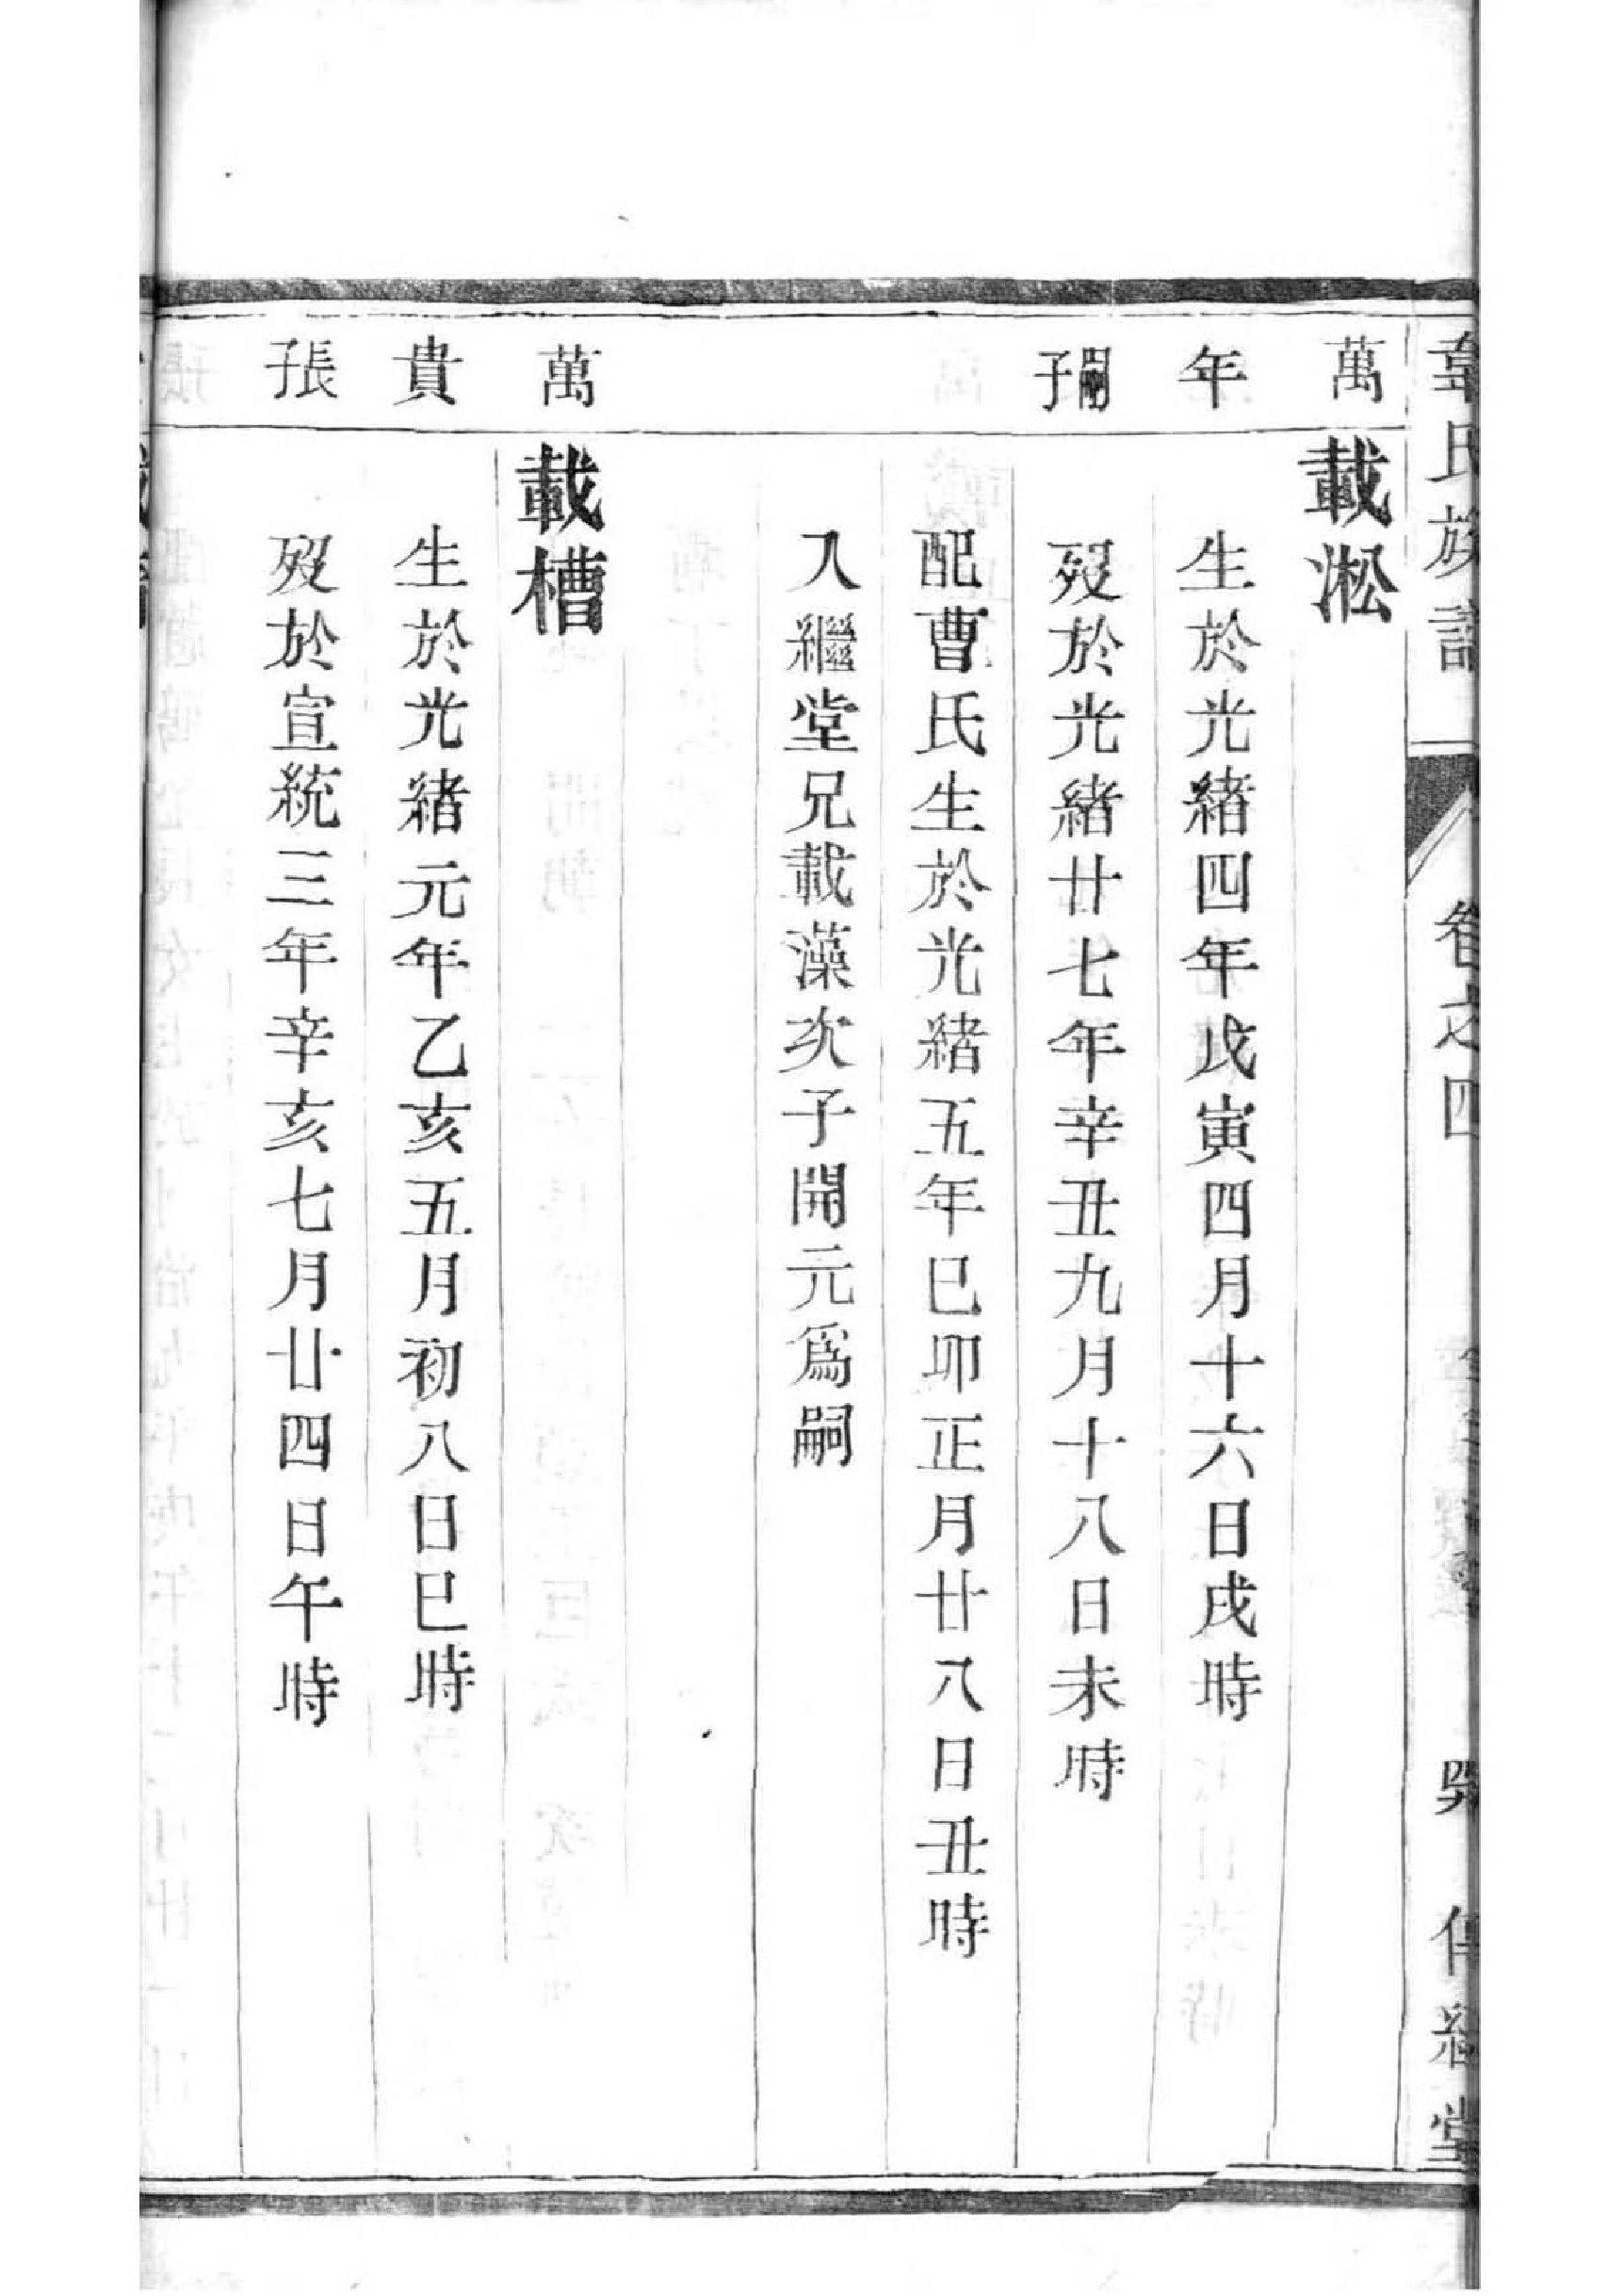 韋氏族譜
卷之四
傳經堂
萬 載淞
年 生於光緒四年戊寅四月十六日戌時
嗣子 歿於光緒廿七年辛丑九月十八日未時
配曹氏生於光緒五年巳卯正月廿八日丑時
入繼堂兄載藻次子開元爲嗣
萬 載槽
貴 生於光緒元年乙亥五月初八日巳時
張子 歿於宣統三年辛亥七月廿四日午時